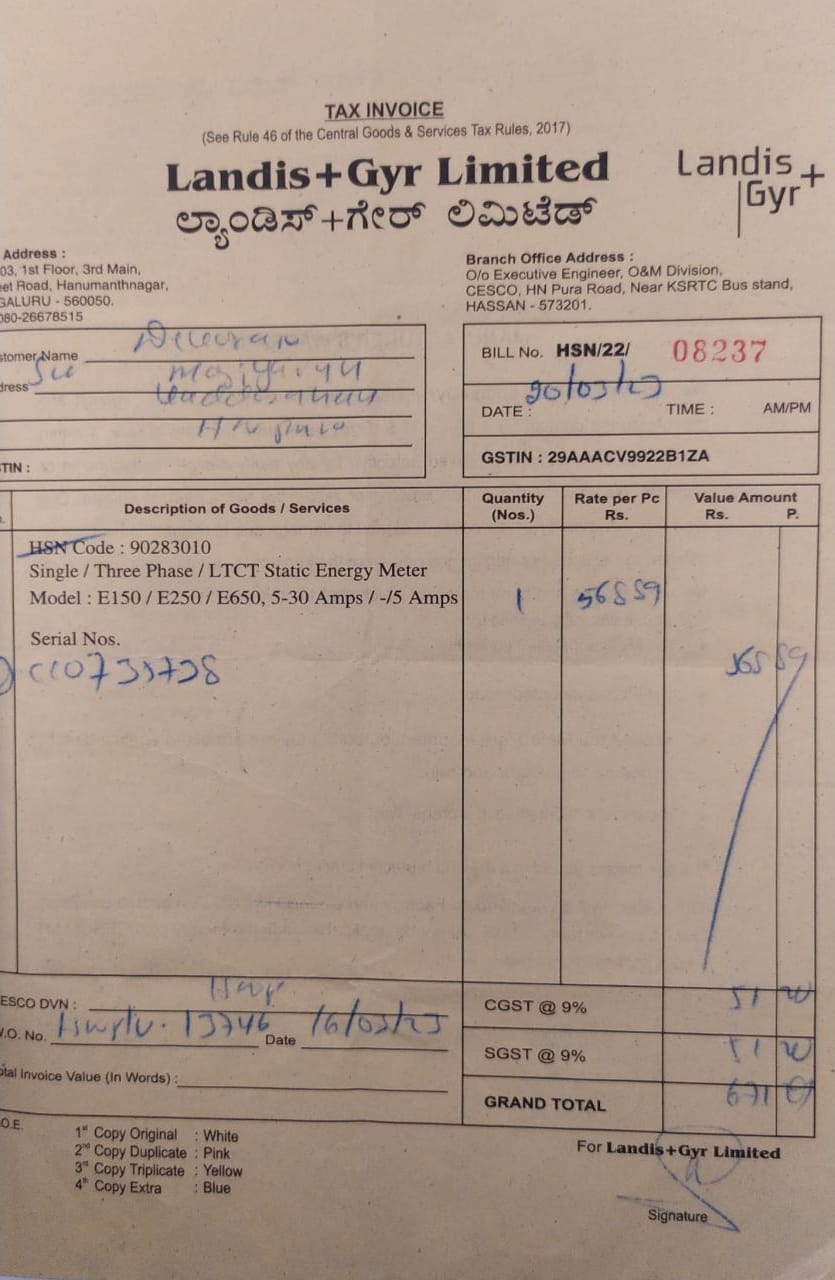 TAX INVOICE
(See Rule 46 of the Central Goods & Services Tax Rules, 2017)
Landis+Gyr Limited
ಲ್ಯಾಂಡಿಸ್+ಗೇರ್ ಲಿಮಿಟೆಡ್
Landis
Gyr+
Address :
03, 1st Floor, 3rd Main,
eet Road, Hanumanthnagar,
GALURU - 560050.
080-26678515
Branch Office Address :
O/o Executive Engineer, O&M Division,
CESCO, HN Pura Road, Near KSRTC Bus stand,
HASSAN - 573201.
stomer Name
dress
TIN :
BILL No. HSN/22/ 08237
DATE : TIME : AM/PM
GSTIN : 29AAACV9922B1ZA
Description of Goods / Services Quantity (Nos.) Rate per Pc Rs. Value Amount Rs. P.
HSN Code : 90283010
Single / Three Phase / LTCT Static Energy Meter
Model : E150 / E250 / E650, 5-30 Amps / -/5 Amps 1
Serial Nos.
ESCO DVN :
V.O. No. 13746 Date
otal Invoice Value (In Words) :
CGST @ 9% 51
SGST @ 9% 51
GRAND TOTAL 671
.O.E.
1st Copy Original : White
2nd Copy Duplicate : Pink
3rd Copy Triplicate : Yellow
4th Copy Extra : Blue
For Landis+Gyr Limited
Signature